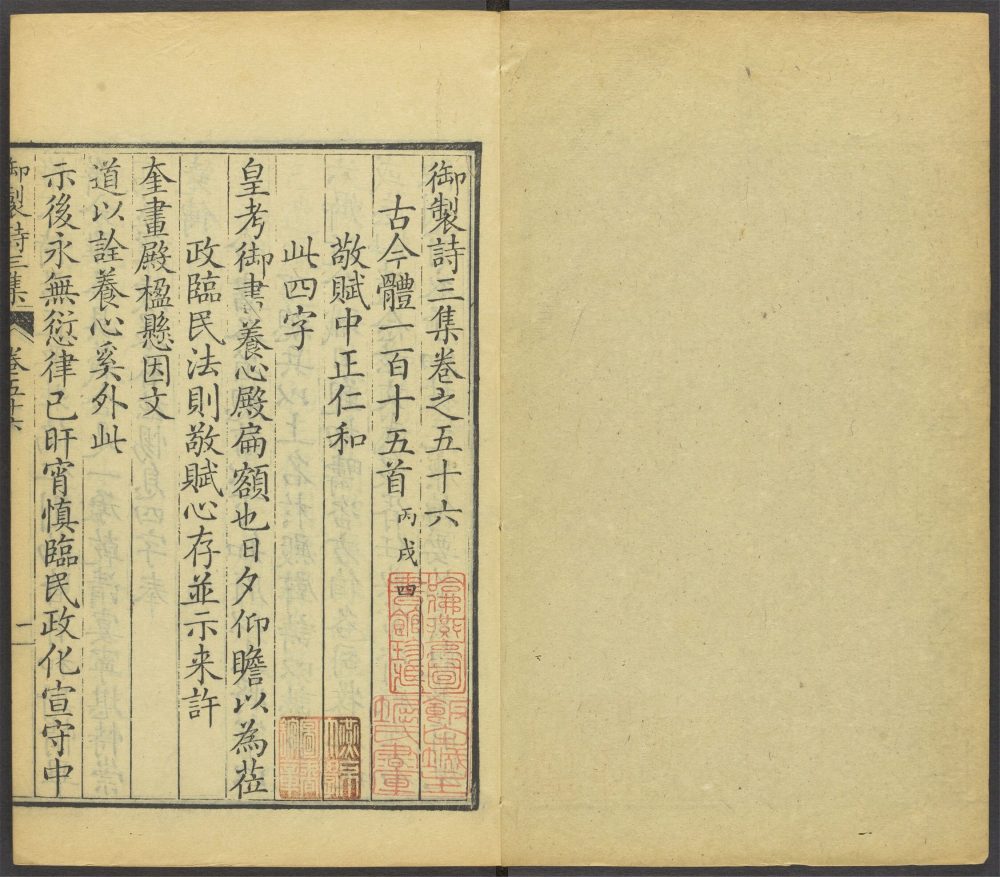 御製詩三集卷之五十六
古今體一百十五首 丙戌四
敬賦中正仁和
此四字
皇考御書養心殿扁額也日夕仰瞻以為莅
政臨民法則敬賦心存並示来許
奎畫殿楹懸因文
道以詮養心奚外此
示後永無愆律己旰宵慎臨民政化宣守中
御製詩三集 卷五十六 一